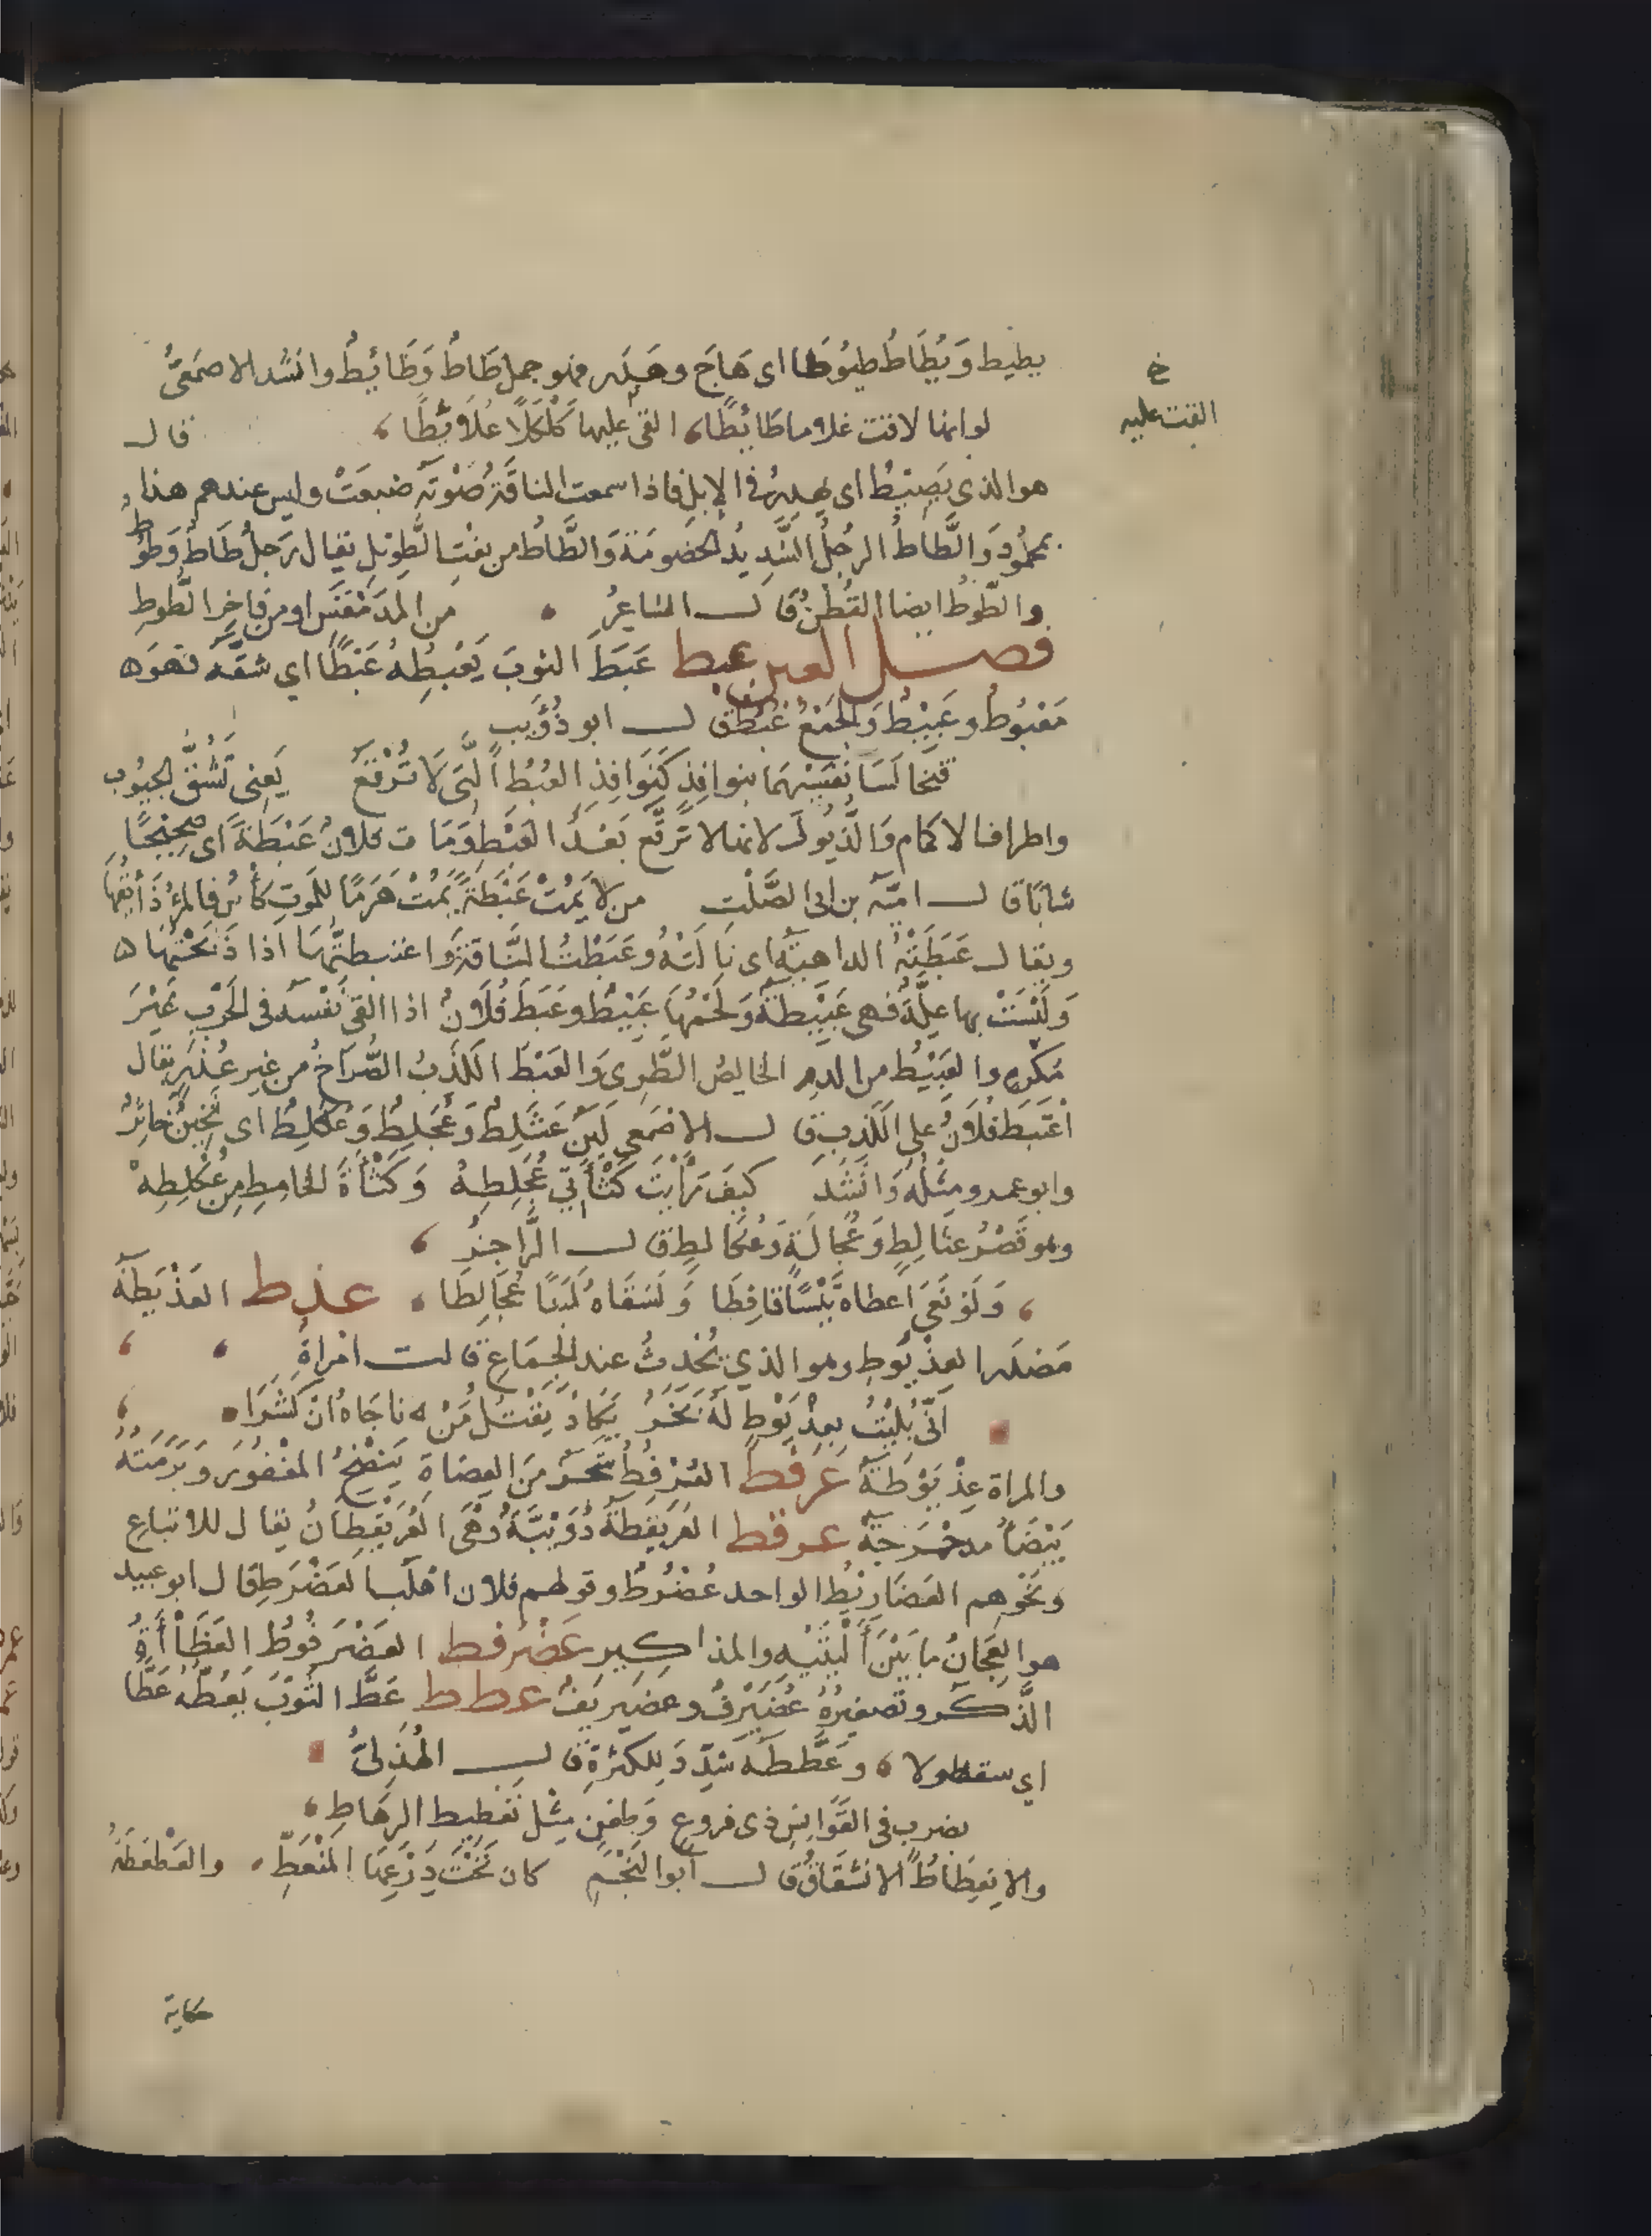 يطيط وَيُطَاطُ طيُوطًا اى هَاجَ وهَدَر فهو جمل طَاطٌ وَطَائِطٌ وانشد الاصمَعىُّ
خ
القت عليه
لو انها لاقت غلاما طَائِطًا، القى عليها كَلْكَلًا عُلَابِطًا، قال
هو الذى يَصِيْطُ اى يهدِرُ فى الابل فاذا سمعت الناقَةُ صَوْتَه ضبعَتْ وليس عندهم هذا
بمحمُودٍ وَالطَّاطُ الرجُلُ الشَّدِيدُ الخصُومَة وَالطَّاط من نعْتِ الطَّوِيْلِ يقال رَجلٌ طَاطٌ وَطُوْطٌ
والطُّوْطُ ايضا القُطْنُ قال الشاعِرُ من المدَمْقَسِ او من فاخِرِ الطُّوطِ
فصل العين عبط عَبَطَ الثوبَ يَعْبِطُهُ عَبْطًا اي شقّه فهوَ
مَعْبُوطٌ وعَبِيْطٌ وَالجَمْعُ عُبُطٌ قال ابو ذُؤَيب
فتخالَسَا نَفْسَيْهِمَا بنوافِذٍ كَنَوافِذِ العُبُطِ الَّتى لَا تُرْقَعُ يَعنى تَشُقُّ الجيُوب
واطراف الاكمام وَالذُّيُول لانها لا تَرَقَّع بَعْدَ العَبْطِ وَمَات فلانٌ عَبْطَةً اى صَحِيْحًا
شابًا قال اميّه بن ابى الصَّلْت من لا يَمُتْ عَبْطَةً يَمُتْ هَرَمًا للمَوتِ كَأْسٌ فالمرْءُ ذَائقُهَا
ويقال عَبَطَتْهُ الداهِيَةُ اى نَالَتْهُ وعَبَطْتُ النَّاقَةَ وَاعْتبطتُهَا اذا ذَبَحْتَهَا
وَلَيْسَتْ بها علَّةٌ فهى عَبِيْطَةٌ وَلَحْمُهَا عَبِيْطٌ وعَبَطَ فُلَانٌ اذا القى نَفْسَه فى الحَرْبِ غَيْرَ
مُكْرَهٍ والعَبِيْطُ من الدمِ الخالِصُ الطَّرِى وَالعَبْطُ الكَذِبُ الصُّرَاحُ من غير عُذر يقال
اعْتَبَطَ فُلَانٌ على الكَذِب قال الاصْمعى لَبَن عُثَلِطٌ وَعُجَلِطٌ وَعُكَلِطٌ اى ثخِينٌ خاثِرٌ
وابو عمرو مِثْلُه وَانْشَدَ كيفَ رَأَيْتَ كَثْأَتَي عُجَلِطِهْ وَكَثْأَةَ الخامِطِ مِنْ عُكَلِطِهْ
وهو قَصْرُ عثالِطٍ وَعُجالِطٍ وَعُكالِطٍ قال الرَّاجِزُ،
، وَلَوْ بَغَى اعطاهُ تَيْسًا قافِطَا وَلَسَقَاهُ لَبَنًا عُجَالِطَا، عذط العَذْيَطَة
مَصْدَر العِذْيَوطِ وهو الذي يُحْدِثُ عند الجِمَاعِ قالت امْرأةٌ ، ،
انِّى بُلِيْتُ بعِذْيَوْطٍ لَهُ بَخَرُ يَكادُ يَقْتُلُ مَنْ ناجَاهُ انْ كَشَرَا
والمراة عِذْيَوْطَةٌ عرفط العُرْفُطُ شَجَرٌ مِنَ العِضَاةِ يَنْضَحُ المغْفُورَ وَبَرَمَتُهُ
بَيْضَاءُ مدحْرَجةٌ عرقط العُرَيْقِطَةُ دُوَيْبَّةٌ وَهْىَ العُرَيْقِطَانُ يقال للاتباعِ
ونَحْوِهم العَضَارِيْطُ الواحد عُضْرُطٌ وقولهم فلان اهْلَب العَضْرَطِ قال ابو عبيد
هو العِجَانُ ما بَيْنَ ألْيَتَيْهِ والمذاكِيرِ عَضْرفط العَضْرَفُوْطُ العَظَاءَةُ
الذَّكَر وتصغِيرُهُ عُضَيْرِفٌ وعضيريف عطط عَطَّ الثَّوبَ يَعُطُّهُ عَطًّا
اي شقه طولا، وعَطَّطَه شدّدَ للكَثْرَةِ قال الهُذَلىُّ
بضرب فى القَوَانِسِ ذى فروع وَطعْنٍ مِثْل تَعْطِيط الرِهَاطِ،
والانْعِطَاطُ الانشقَاقُ قال أبو النَجْمِ كان تَحْتَ دِرْعِهَا المنْعَطِّ، والعَطْعَطَةُ
حكاية